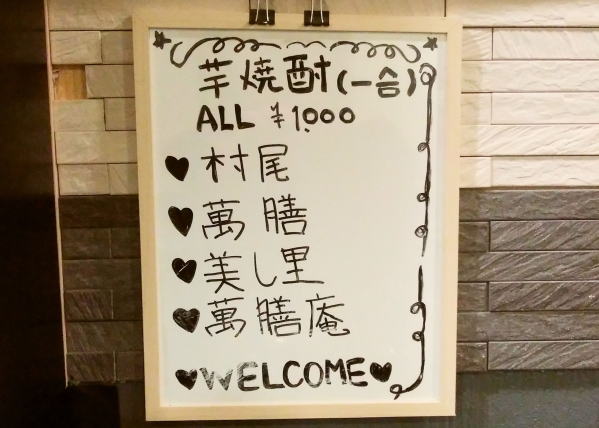 芋焼酎(一合)
ALL ¥1,000
♥村尾
♥萬膳
♥美し里
♥萬膳庵
♥WELCOME♥